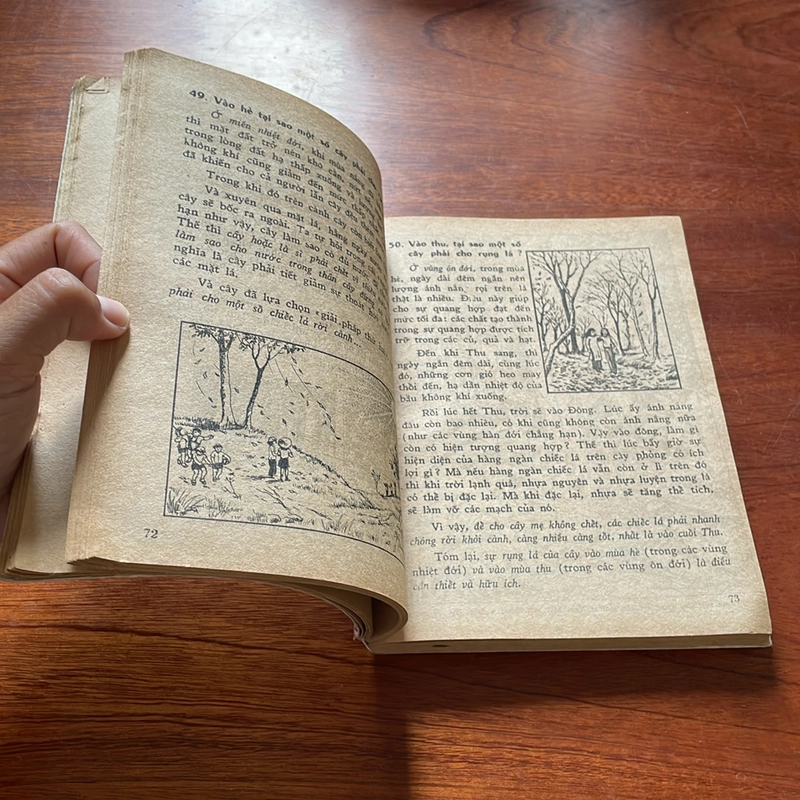 49. Vào hè tại sao một số cây phải
Ở miền nhiệt đới, khi mùa
thì mặt đất trở nên khô cằn,
trong lòng đất hạ thấp xuống
không khí cũng giảm đến mức
đã khiến cho cả người lẫn cây đều
Trong khi đó trên cành cây vẫn
Và xuyên qua mặt lá, hằng ngày
cây sẽ bốc ra ngoài. Ta tự hỏi trong
hạn như vậy, cây làm sao có đủ nước
Thế thì cây hoặc là sẽ phải chết
làm sao cho nước trong thân cây đừng
nghĩa là cây phải tiết giảm sự thoát hơi
các mặt lá.
Và cây đã lựa chọn giải pháp thứ
phải cho một số chiếc lá rời cành...
72
50. Vào thu, tại sao một số
cây phải cho rụng lá ?
Ở vùng ôn đới, trong mùa
hè, ngày dài đêm ngắn nên
lượng ánh nắng rọi trên lá
thật là nhiều. Điều này giúp
cho sự quang hợp đạt đến
mức tối đa: các chất tạo thành
trong sự quang hợp được tích
trữ trong các củ, quả và hạt.
Đến khi Thu sang, thì
ngày ngắn đêm dài, cùng lúc
đó, những cơn gió heo may
thổi đến, hạ dần nhiệt độ của
bầu không khí xuống.
Rồi lúc hết Thu, trời sẽ vào Đông. Lúc ấy ánh nắng
đâu còn bao nhiêu, có khi cũng không còn ánh nắng nữa
(như các vùng hàn đới chẳng hạn). Vậy vào đông, làm gì
còn có hiện tượng quang hợp ? Thế thì lúc bấy giờ sự
hiện diện của hàng ngàn chiếc lá trên cây phỏng có ích
lợi gì ? Mà nếu hàng ngàn chiếc lá vẫn còn ở lì trên đó
thì khi trời lạnh quá, nhựa nguyên và nhựa luyện trong lá
có thể bị đặc lại. Mà khi đặc lại, nhựa sẽ tăng thể tích,
sẽ làm vỡ các mạch của nó.
Vì vậy, để cho cây mẹ không chết, các chiếc lá phải nhanh
chóng rời khỏi cành, càng nhiều càng tốt, nhất là vào cuối Thu.
Tóm lại, sự rụng lá của cây vào mùa hè (trong các vùng
nhiệt đới) và vào mùa thu (trong các vùng ôn đới) là điều
cần thiết và hữu ích.
73